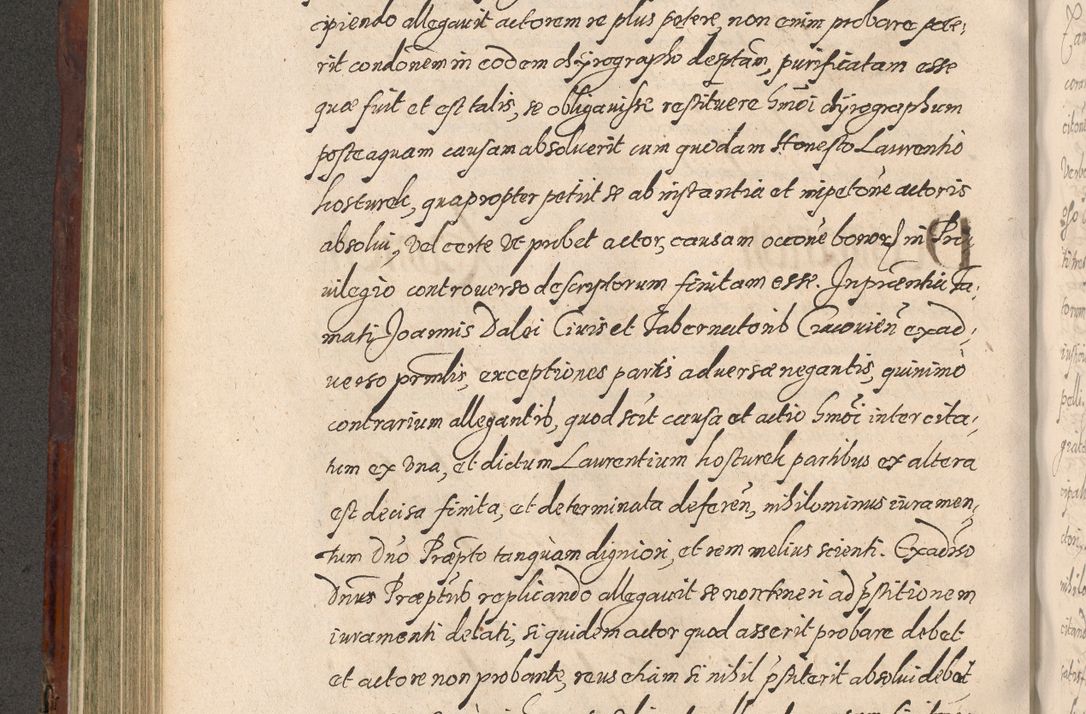 cipiendo allegavit actorem re plus petere, non enim probare pote,
rit condonem in eodem chyrographo desptam, purificatam esse
quæ fuit et est talis, se obligavisse restituere hmōi chyrographum
posteaquam causam absolverit cum quodam Honesto Laurentio
hosturek, quapropter petiit se ab instantia et impetōne actoris
absolui, Vel certe Vt pubet actor, causam occōne bonor in Pri,
uilegio controverso descriptorum finitam esse. In præntia Fa,
mati Joannis Dalei Civis et Tabernatoris Cracovień ex ad,
uerso prmlis, exceptiones partis adversæ negantis, quinimo
contrarium allegantis, quod scit causa et actio hmōi inter cita,
tum ex Vna, et dictum Laurentium hosturek partibus ex altera
est decisa finita, et determinata deferen, nihilominus iuramen,
tum Dno Præpto tanquam digniori, et rem melius scienti. Ex adıso
Dnus Præptus replicando allegavit se non teneri ad pstitionem
iuramenti delati, siquidem actor quod asserit probare debet
et actore non probante, reus etiam si nihil pstiterit absolui debet